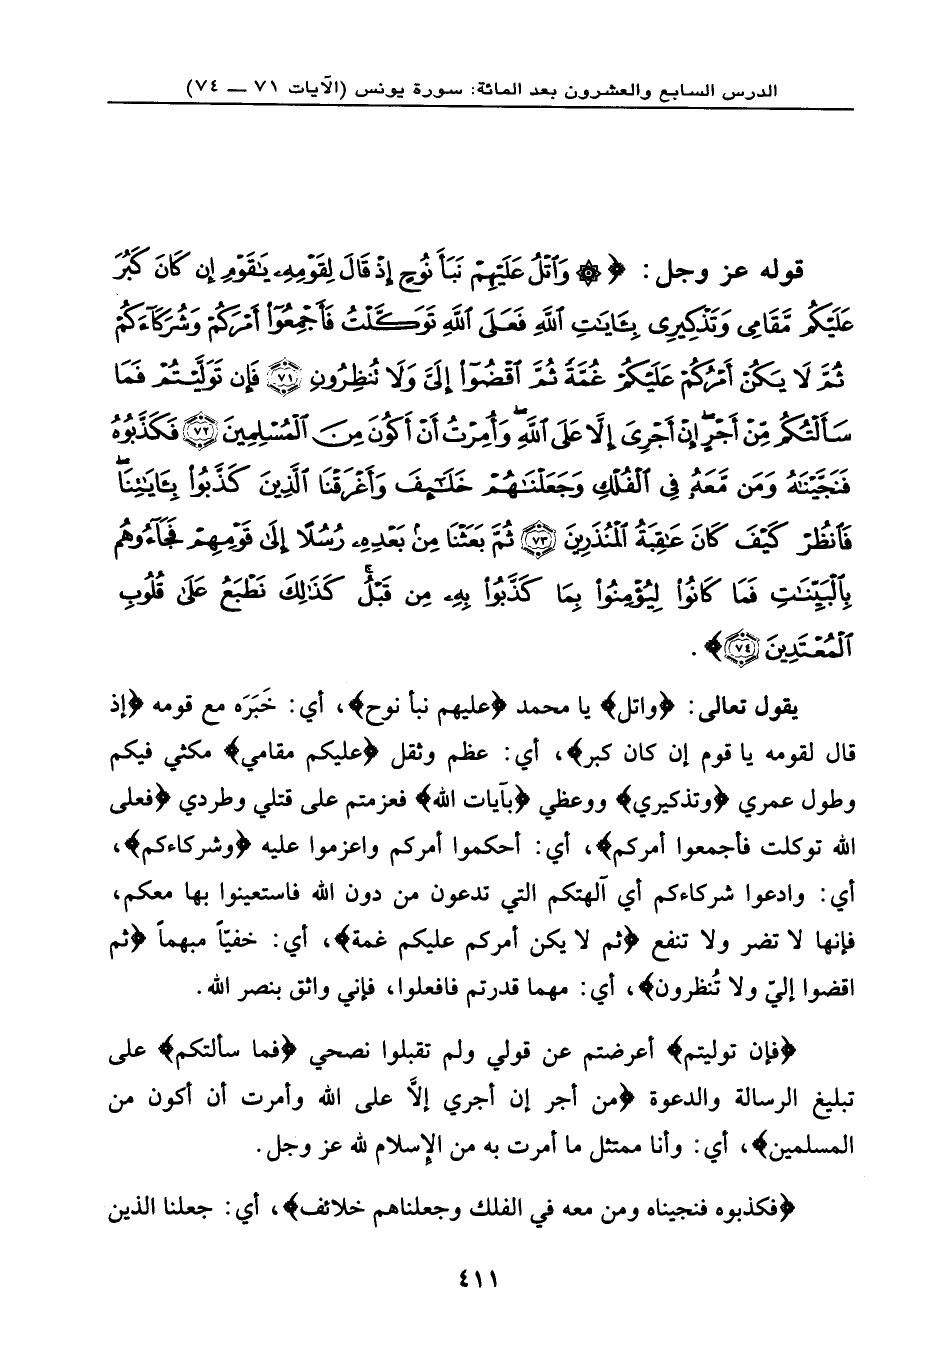 الدرس السابع والعشرون بعد المائة: سورة يونس (الآيات ٧١ — ٧٤)
قوله عز وجل: ﴿ ۞ وَٱتْلُ عَلَيْهِمْ نَبَأَ نُوحٍ إِذْ قَالَ لِقَوْمِهِۦ يَٰقَوْمِ إِن كَانَ كَبُرَ
عَلَيْكُم مَّقَامِى وَتَذْكِيرِى بِـَٔايَٰتِ ٱللَّهِ فَعَلَى ٱللَّهِ تَوَكَّلْتُ فَأَجْمِعُوٓا۟ أَمْرَكُمْ وَشُرَكَآءَكُمْ
ثُمَّ لَا يَكُنْ أَمْرُكُمْ عَلَيْكُمْ غُمَّةً ثُمَّ ٱقْضُوٓا۟ إِلَىَّ وَلَا تُنظِرُونِ ۝٧١ فَإِن تَوَلَّيْتُمْ فَمَا
سَأَلْتُكُم مِّنْ أَجْرٍ ۖ إِنْ أَجْرِىَ إِلَّا عَلَى ٱللَّهِ ۖ وَأُمِرْتُ أَنْ أَكُونَ مِنَ ٱلْمُسْلِمِينَ ۝٧٢ فَكَذَّبُوهُ
فَنَجَّيْنَٰهُ وَمَن مَّعَهُۥ فِى ٱلْفُلْكِ وَجَعَلْنَٰهُمْ خَلَٰٓئِفَ وَأَغْرَقْنَا ٱلَّذِينَ كَذَّبُوا۟ بِـَٔايَٰتِنَا ۖ
فَٱنظُرْ كَيْفَ كَانَ عَٰقِبَةُ ٱلْمُنذَرِينَ ۝٧٣ ثُمَّ بَعَثْنَا مِنۢ بَعْدِهِۦ رُسُلًا إِلَىٰ قَوْمِهِمْ فَجَآءُوهُم
بِٱلْبَيِّنَٰتِ فَمَا كَانُوا۟ لِيُؤْمِنُوا۟ بِمَا كَذَّبُوا۟ بِهِۦ مِن قَبْلُ ۚ كَذَٰلِكَ نَطْبَعُ عَلَىٰ قُلُوبِ
ٱلْمُعْتَدِينَ ۝٧٤ ﴾ .
يقول تعالى: ﴿واتل﴾ يا محمد ﴿عليهم نبأ نوح﴾، أي: خَبَرَه مع قومه ﴿إذ
قال لقومه يا قوم إن كان كبر﴾، أي: عظم وثقل ﴿عليكم مقامي﴾ مكثي فيكم
وطول عمري ﴿وتذكيري﴾ ووعظي ﴿بآيات الله﴾ فعزمتم على قتلي وطردي ﴿فعلى
الله توكلت فأجمعوا أمركم﴾، أي: أحكموا أمركم واعزموا عليه ﴿وشركاءكم﴾،
أي: وادعوا شركاءكم أي آلهتكم التي تدعون من دون الله فاستعينوا بها معكم،
فإنها لا تضر ولا تنفع ﴿ثم لا يكن أمركم عليكم غمة﴾، أي: خفيّاً مبهماً ﴿ثم
اقضوا إليّ ولا تُنظرون﴾، أي: مهما قدرتم فافعلوا، فإني واثق بنصر الله.
﴿فإن توليتم﴾ أعرضتم عن قولي ولم تقبلوا نصحي ﴿فما سألتكم﴾ على
تبليغ الرسالة والدعوة ﴿من أجر إن أجري إلاَّ على الله وأمرت أن أكون من
المسلمين﴾، أي: وأنا ممتثل ما أمرت به من الإسلام لله عز وجل.
﴿فكذبوه فنجيناه ومن معه في الفلك وجعلناهم خلائف﴾، أي: جعلنا الذين
٤١١